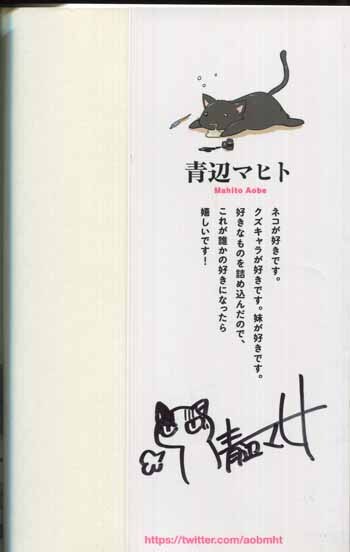 青辺マヒト
Mahito Aobe
ネコが好きです。
クズキャラが好きです。妹が好きです。
好きなものを詰め込んだので、
これが誰かの好きになったら
嬉しいです！
https://twitter.com/aobmht